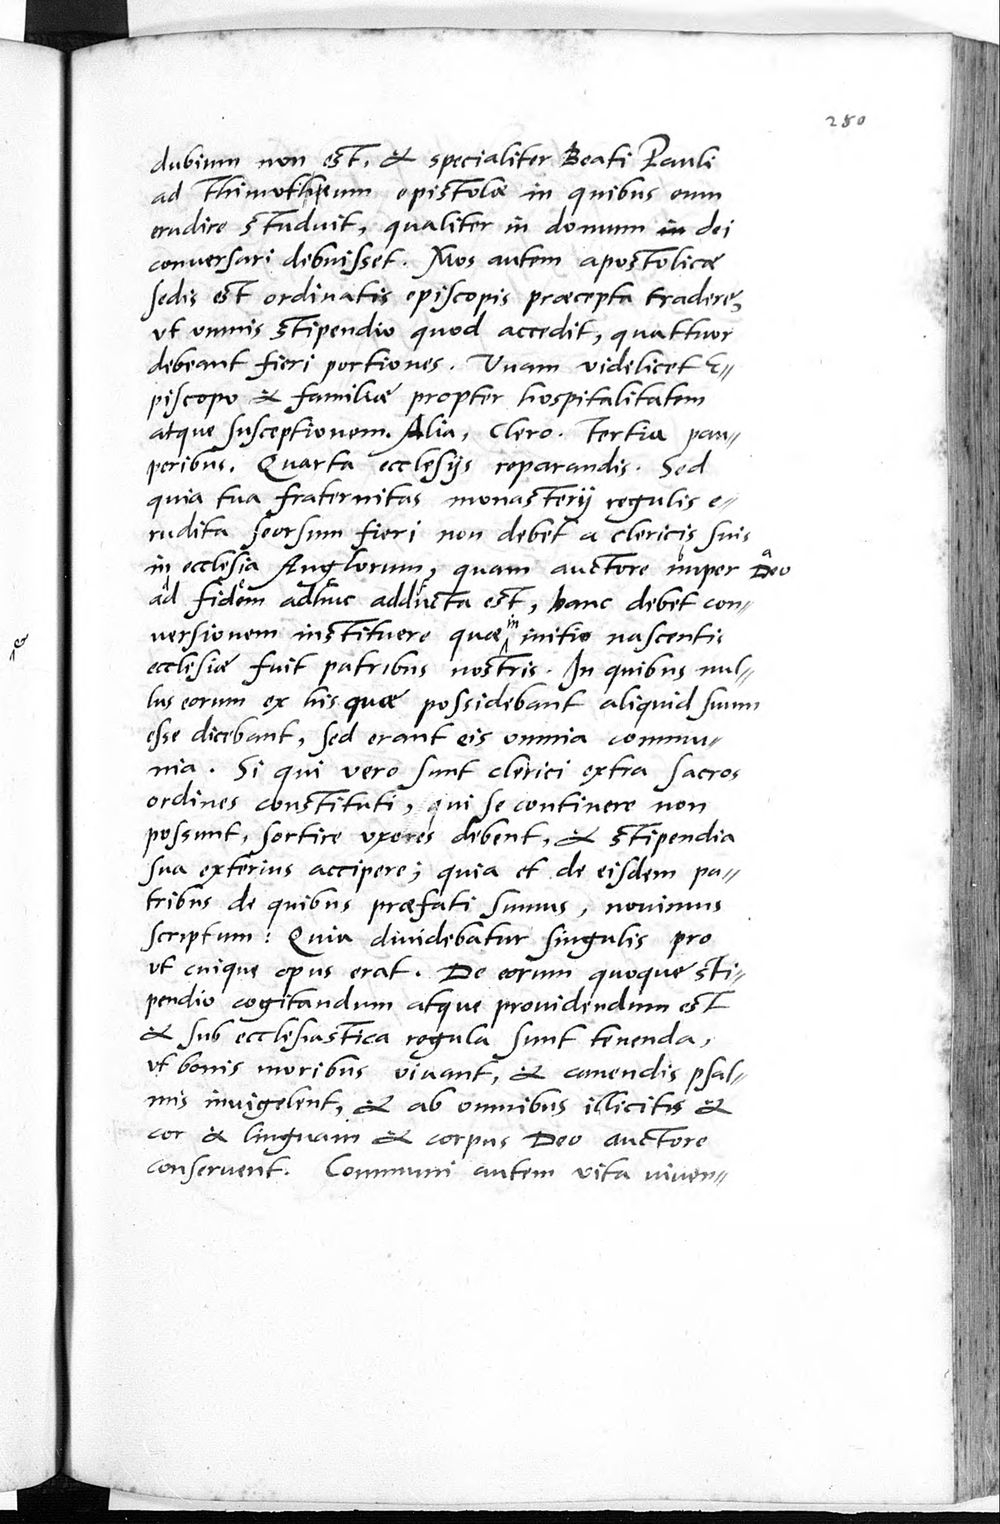 280
dubium non est, & specialiter Beati Pauli
ad Thimotheum epistolæ in quibus eum
erudire studuit, qualiter in domum in dei
conuersari debuisset. Mos autem apostolicæ
sedis est ordinatis episcopis præcepta tradere,
vt omnis stipendio quod accedit, quattuor
debeant fieri portiones. Vnam videlicet E-
piscopo & familiæ propter hospitalitatem
atque susceptionem. Alia, Clero. Tertia pau-
peribus. Quarta ecclesijs reparandis. Sed
quia tua fraternitas monasterij regulis e-
rudita seorsum fieri non debet a clericis suis
in ecclesia Anglorum, quam auctore nuper Deo
ad fidem adhuc adducta est, hanc debet con-
uersionem instituere quæ in initio nascentis
ecclesiæ fuit patribus nostris. In quibus nul-
lus eorum ex his quæ possidebant aliquid suum
esse dicebant, sed erant eis omnia commu-
nia. Si qui vero sunt clerici extra sacros
ordines constituti, qui se continere non
possunt, sortire vxores debent, & stipendia
sua exterius accipere; quia et de eisdem pa-
tribus de quibus præfati sumus, nouimus
scriptum: Quia diuidebatur singulis pro
vt cuique opus erat. De eorum quoque sti-
pendio cogitandum atque prouidendum est
& sub ecclesiastica regula sunt tenenda,
vt bonis moribus viuant, & canendis psal-
mis inuigelent, & ab omnibus illicitis &
cor & linguam & corpus Deo auctore
conseruent. Communi autem vita viuen-